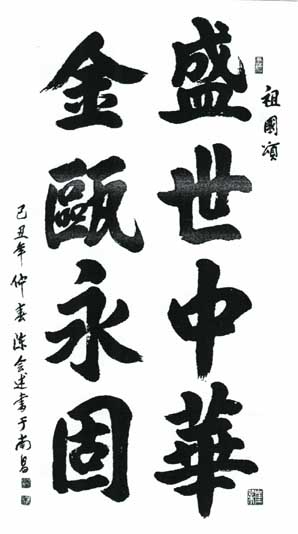 祖國頌
盛世中華
金甌永固
己丑年仲春陈会述書于南昌